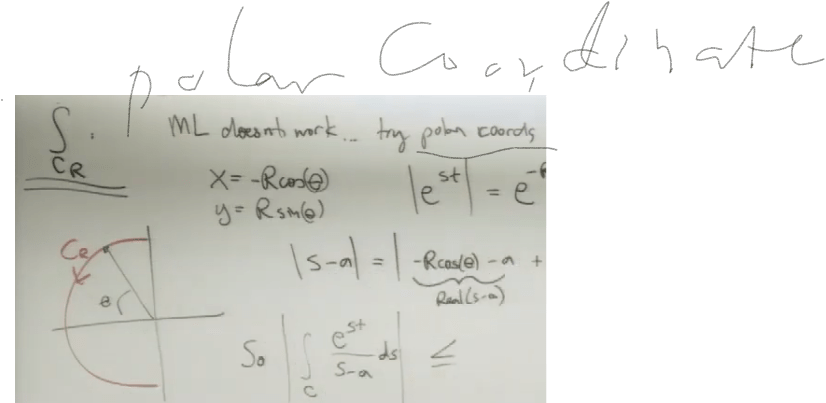 polar Coordinate
∫_{C_R} : ML doesn't work... try polar coords
x = -Rcos(θ)
y = Rsin(θ)
|e^{st}| = e^{-R
C_R
θ
|s-a| = | -Rcos(θ) - a +
Real(s-a)
So | ∫_C e^{st}/(s-a) ds | ≤